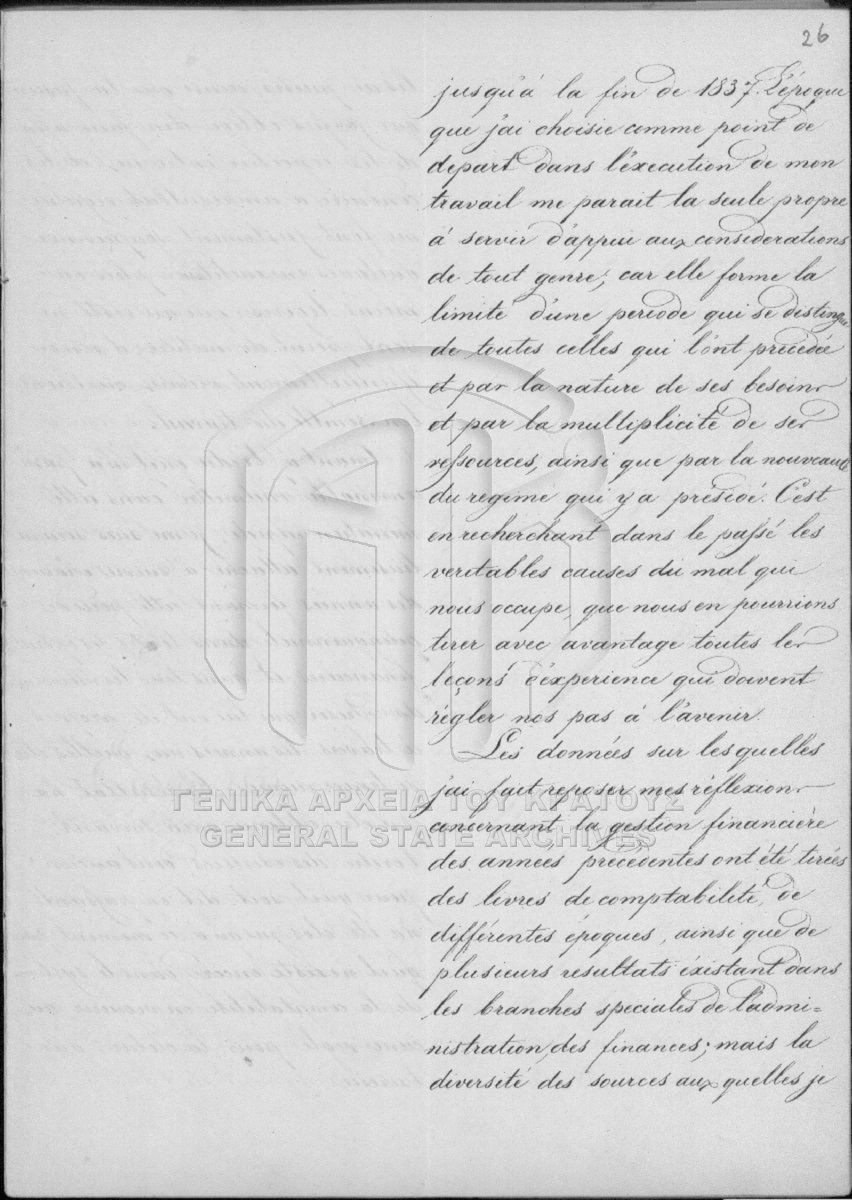 26
jusqu'à la fin de 1837. L'époque
que j'ai choisie comme point de
depart dans l'éxecution de mon
travail me parait la seule propre
à servir d'appui aux considerations
de tout genre; car elle forme la
limite d'une periode qui se distingue
de toutes celles qui l'ont precédée
et par la nature de ses besoins
et par la multiplicité de ses
ressources, ainsi que par la nouveauté
du regime qui y a présidé. C'est
en recherchant dans le passé les
veritables causes du mal qui
nous occupe, que nous en pourrions
tirer avec avantage toutes les
leçons d'éxperience qui doivent
régler nos pas à l'avenir.
Les données sur lesquelles
j'ai fait reposer mes réflexions
ΓΕΝΙΚΑ ΑΡΧΕΙΑ ΤΟΥ ΚΡΑΤΟΥΣ
concernant la gestion financière
GENERAL STATE ARCHIVES
des années précédentes ont été tirées
des livres de comptabilité, de
différentes époques, ainsi que de
plusieurs resultats éxistant dans
les branches speciales de l'admi=
nistration des finances; mais la
diverseté des sources aux quelles je